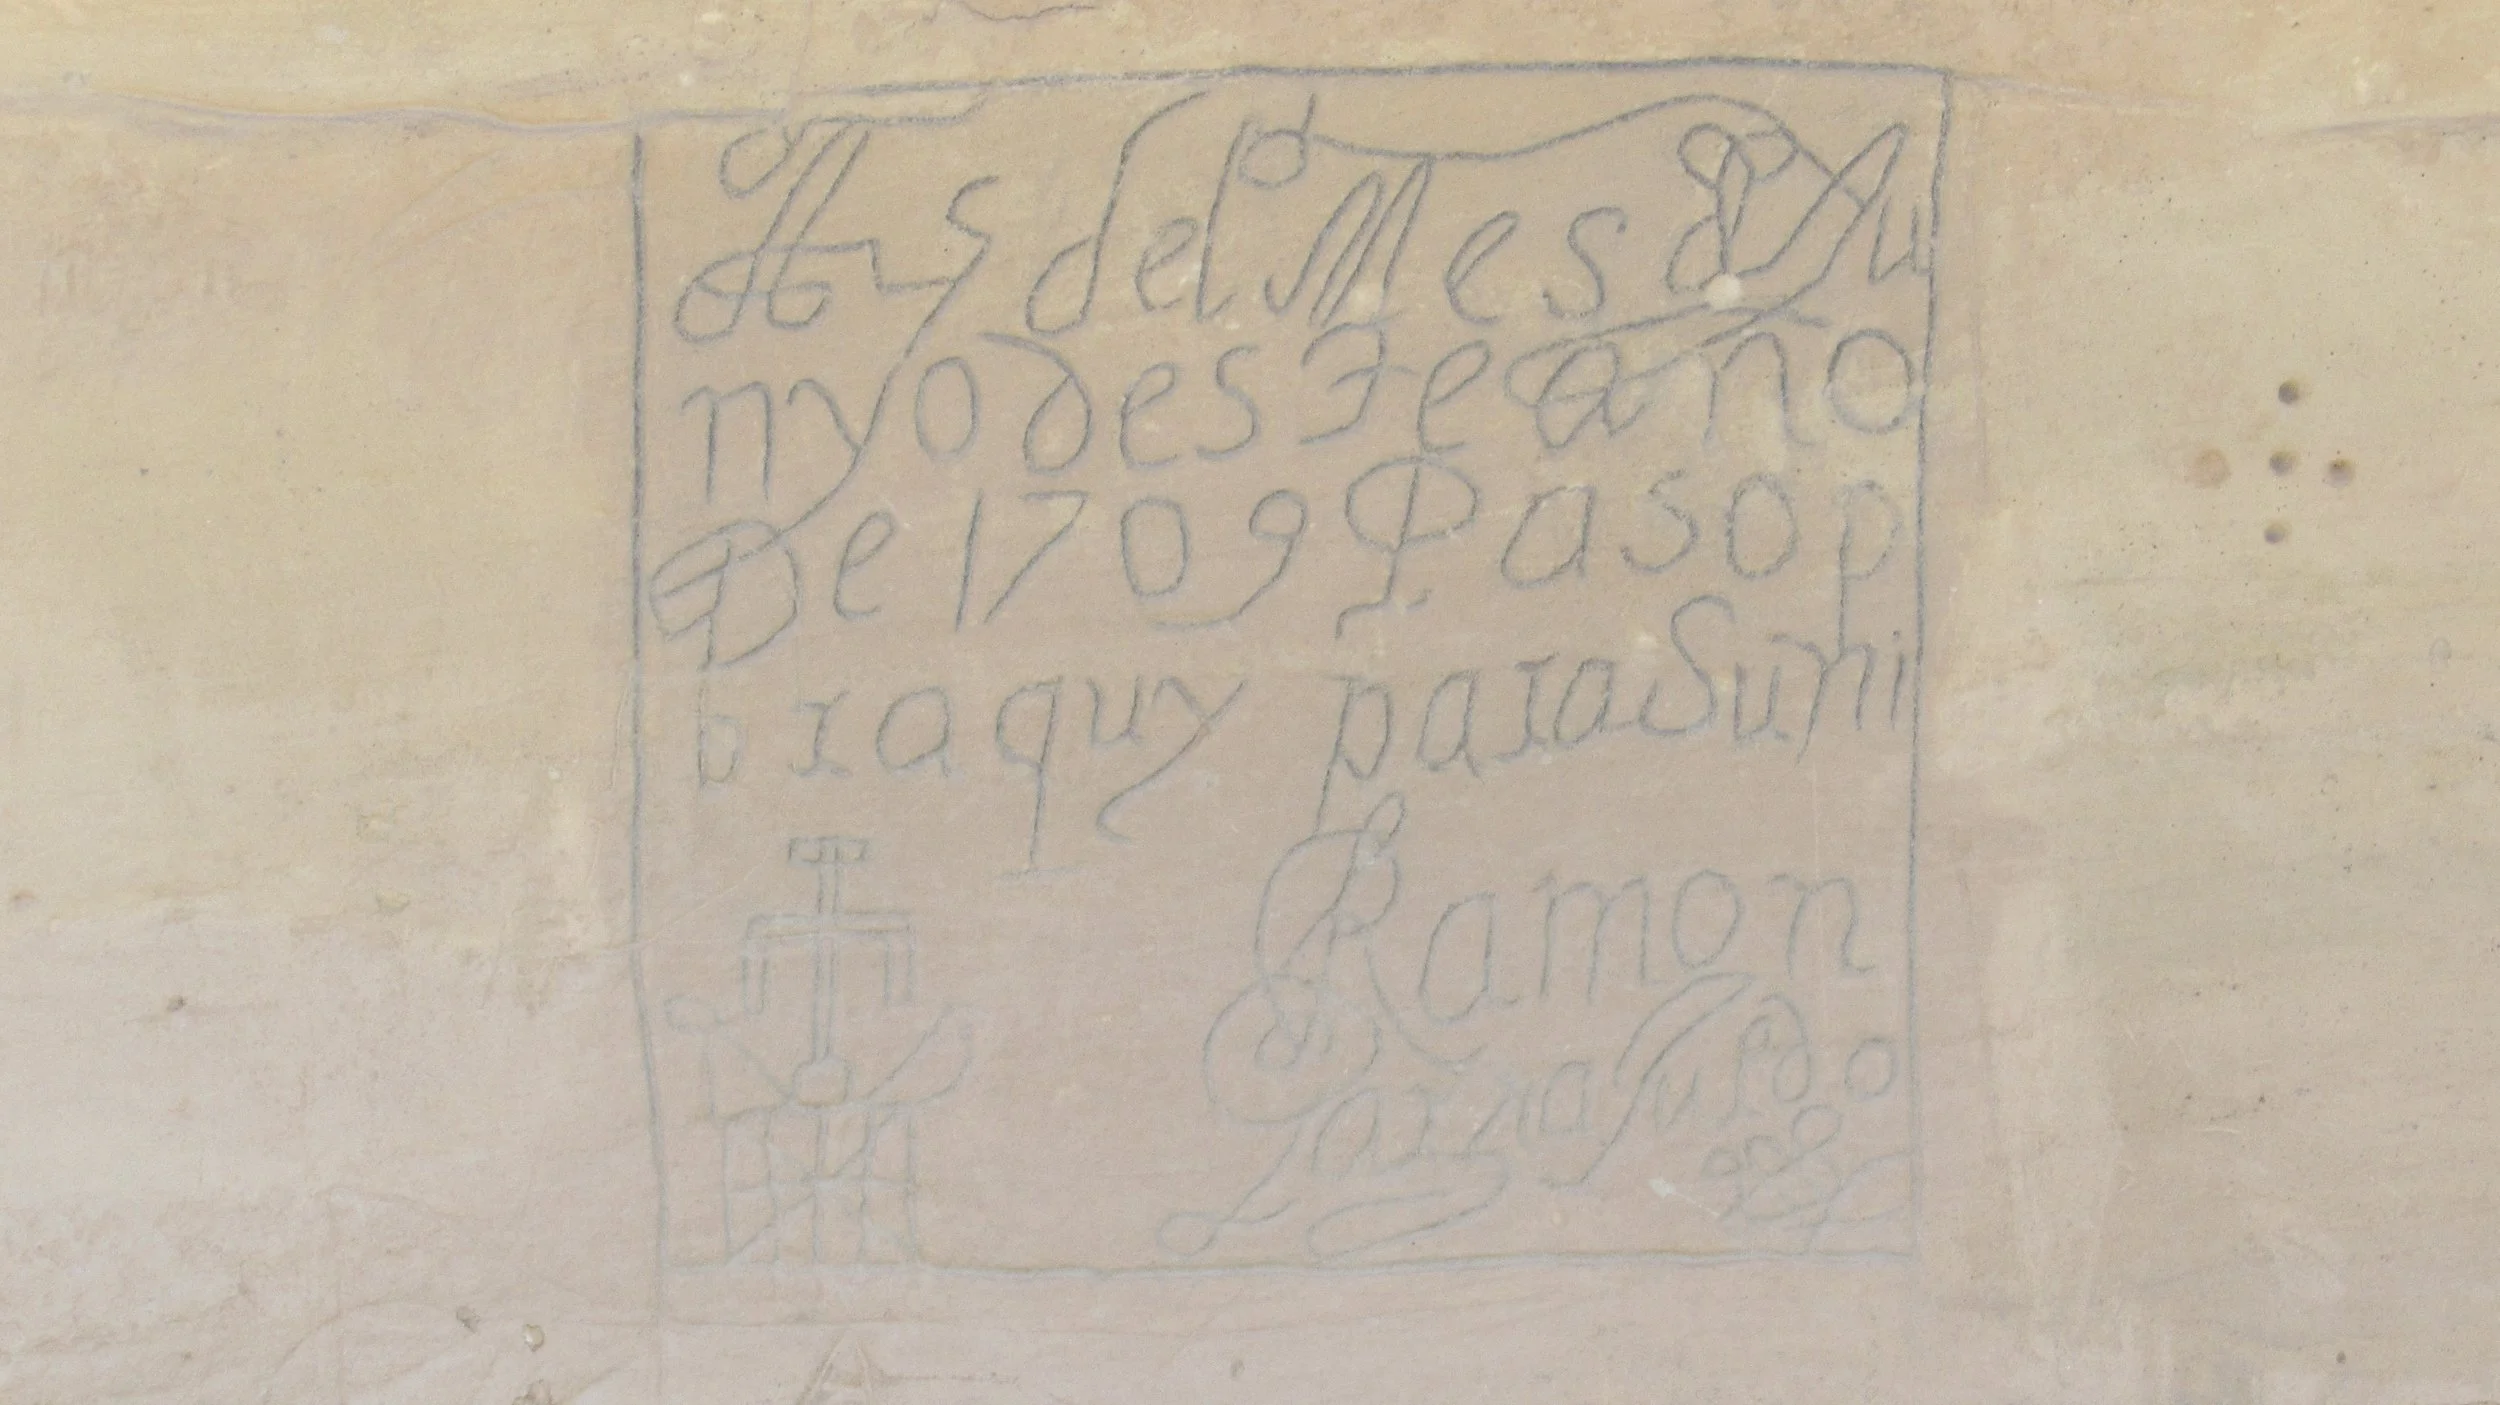 A 25 del Mes d Ju
nyo deste año
De 1709 Paso p
or aquy para Suñi
Ramon
Garzia Jurado